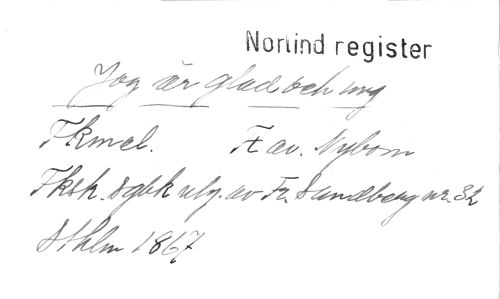 Norlind register
Jag är glad och ung
Fkmel. F av. Nybom
Fksk. sgbk utg. av Fr. Sandberg nr. 32
Sthlm 1867